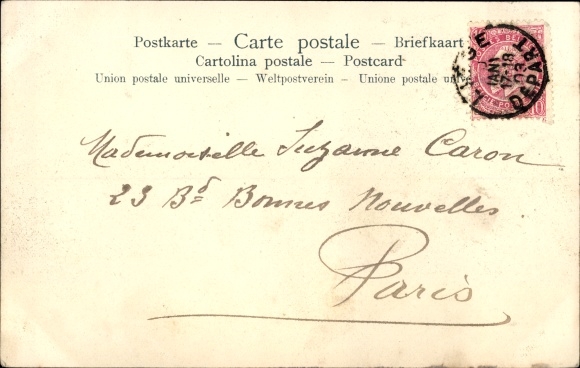 Postkarte — Carte postale — Briefkaart
Cartolina postale — Postcard
Union postale universelle — Weltpostverein — Unione postale
JANV
17-18
03
DEPART
10
Mademoiselle Suzanne Caron
23 Bd Bonnes Nouvelles
Paris